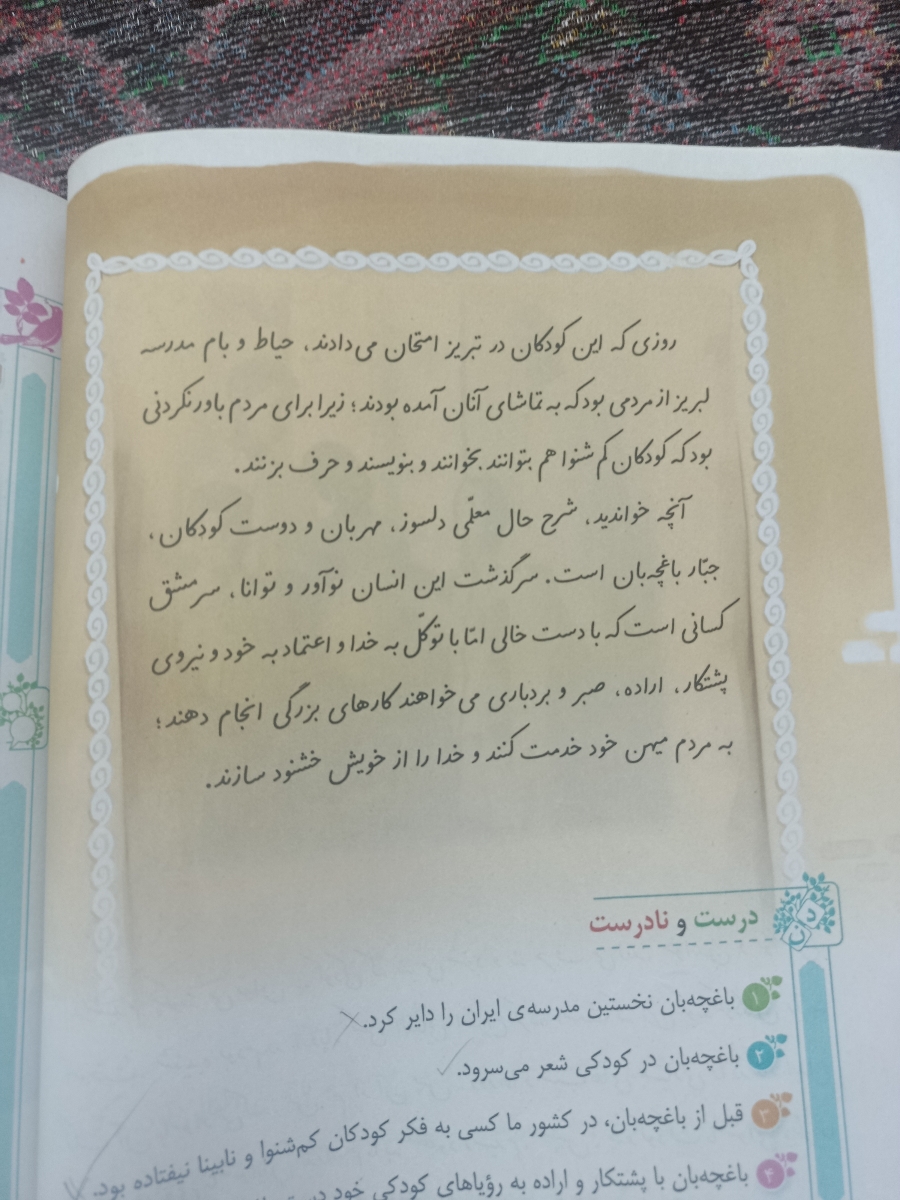 روزی که این کودکان در تبریز امتحان می‌دادند، حیاط و بام مدرسه
لبریز از مردمی بود که به تماشای آنان آمده بودند؛ زیرا برای مردم باور نکردنی
بود که کودکان کم شنوا هم بتوانند بخوانند و بنویسند و حرف بزنند.
آنچه خواندید، شرح حال معلّمی دلسوز، مهربان و دوست کودکان،
جبّار باغچه‌بان است. سرگذشت این انسان نوآور و توانا، سرمشق
کسانی است که با دست خالی امّا با توکّل به خدا و اعتماد به خود و نیروی
پشتکار، اراده، صبر و بردباری می‌خواهند کارهای بزرگی انجام دهند؛
به مردم میهن خود خدمت کنند و خدا را از خویش خشنود سازند.
د
ن
درست و نادرست
۱ باغچه‌بان نخستین مدرسه‌ی ایران را دایر کرد.
۲ باغچه‌بان در کودکی شعر می‌سرود.
۳ قبل از باغچه‌بان، در کشور ما کسی به فکر کودکان کم‌شنوا و نابینا نیفتاده بود.
۴ باغچه‌بان با پشتکار و اراده به رؤیاهای کودکی خود